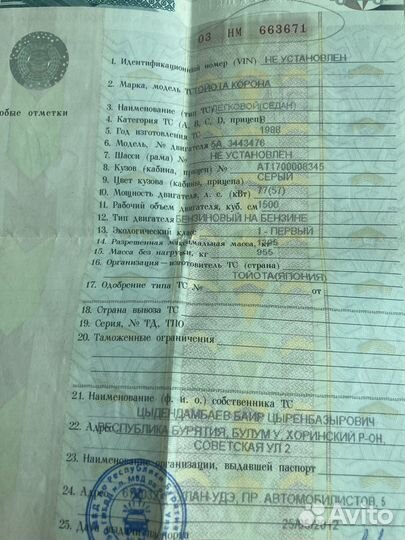 03 НМ 663671
1. Идентификационный номер (VIN) НЕ УСТАНОВЛЕН
2. Марка, модель ТС ТОЙОТА КОРОНА
обые отметки
3. Наименование (тип ТС) ЛЕГКОВОЙ(СЕДАН)
4. Категория ТС (А, В, С, D, прицеп) В
5. Год изготовления ТС 1988
6. Модель, № двигателя 5А, 3443476
7. Шасси (рама) № НЕ УСТАНОВЛЕН
8. Кузов (кабина, прицеп) № АТ1700008345
9. Цвет кузова (кабины, прицепа) СЕРЫЙ
10. Мощность двигателя, л. с. (кВт) 77(57)
11. Рабочий объем двигателя, куб. см 1500
12. Тип двигателя БЕНЗИНОВЫЙ НА БЕНЗИНЕ
13. Экологический класс 1 - ПЕРВЫЙ
14. Разрешенная максимальная масса, кг
15. Масса без нагрузки, кг 955
16. Организация—изготовитель ТС (страна)
ТОЙОТА(ЯПОНИЯ)
17. Одобрение типа ТС № от
18. Страна вывоза ТС
19. Серия, № ТД, ТПО
20. Таможенные ограничения
21. Наименование (ф. и. о.) собственника ТС
ЦЫДЕНДАМБАЕВ БАИР ЦЫРЕНБАЗЫРОВИЧ
22. Адрес РЕСПУБЛИКА БУРЯТИЯ, БУЛУМ У, ХОРИНСКИЙ Р-ОН,
СОВЕТСКАЯ УЛ 2
23. Наименование организации, выдавшей паспорт
24. Адрес УЛАН-УДЭ, ПР. АВТОМОБИЛИСТОВ, 5
25. Дата выдачи паспорта 25/05/2012
Avito